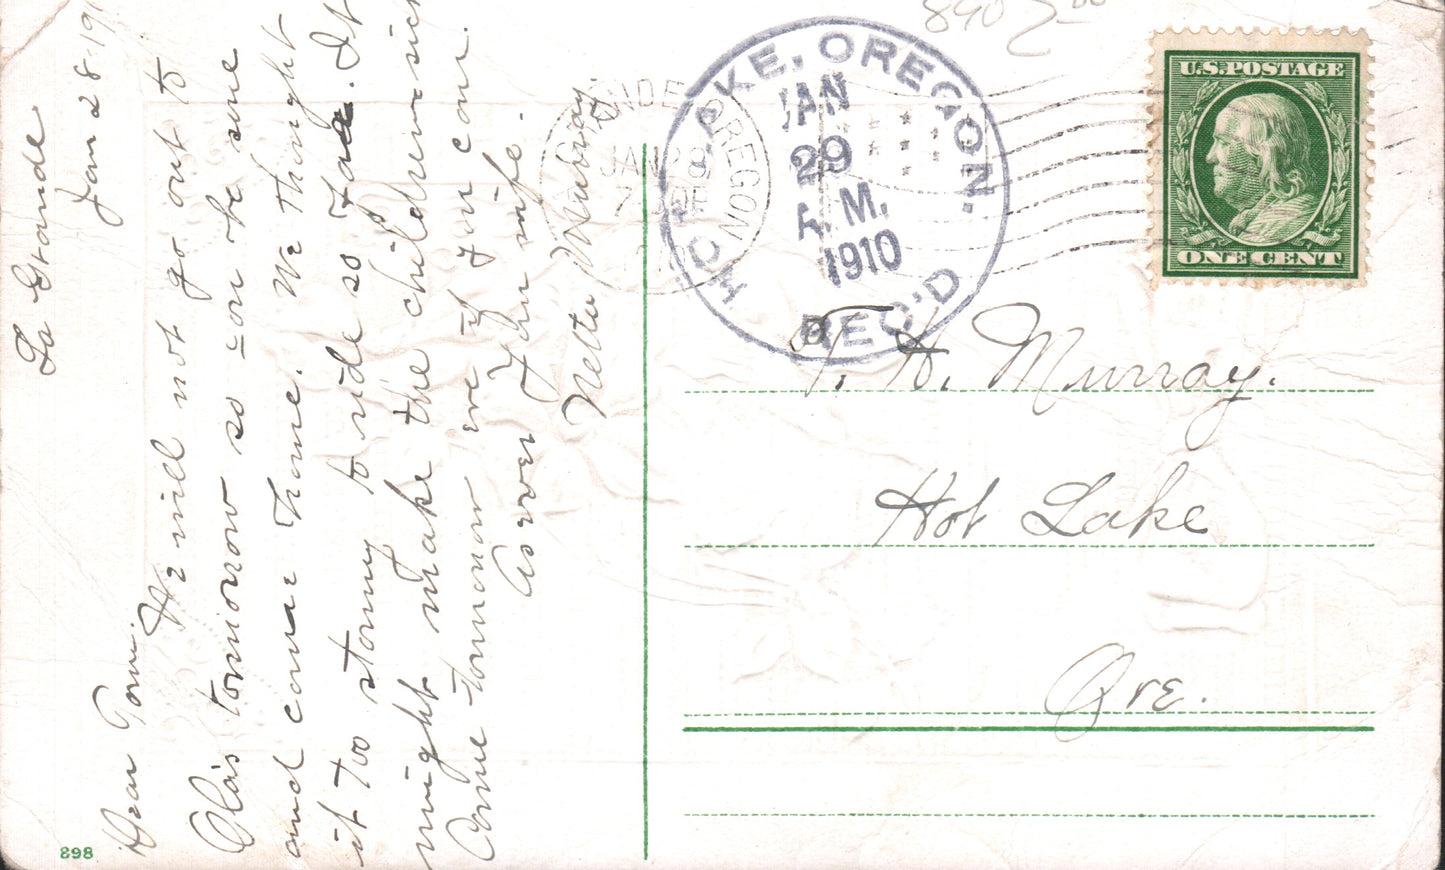 La Grande
Jan 28-191
Dear Tom.
We will not go out to
Ola's tomorrow so you be sure
and come Home. We thought
it too stormy to ride so far. It
might make the children sick
Come tomorrow eve if you can.
As ever Your wife.
Netta Murray
898
890
HOT LAKE, OREGON.
JAN
29
A.M.
1910
REC'D
GRANDE OREGON
JAN 28
7
U.S. POSTAGE
ONE CENT
T. H. Murray.
Hot Lake
Ore.